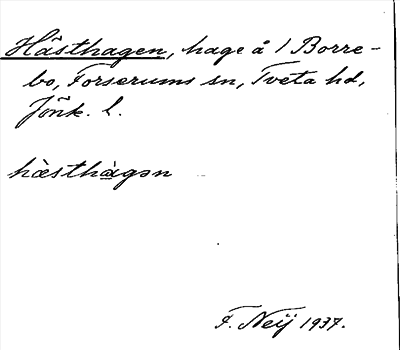 Hästhagen, hage å 1 Borre-
bo, Forserums sn, Tveta hd,
Jönk. l.
hàesthàgən
F. Neij 1937.